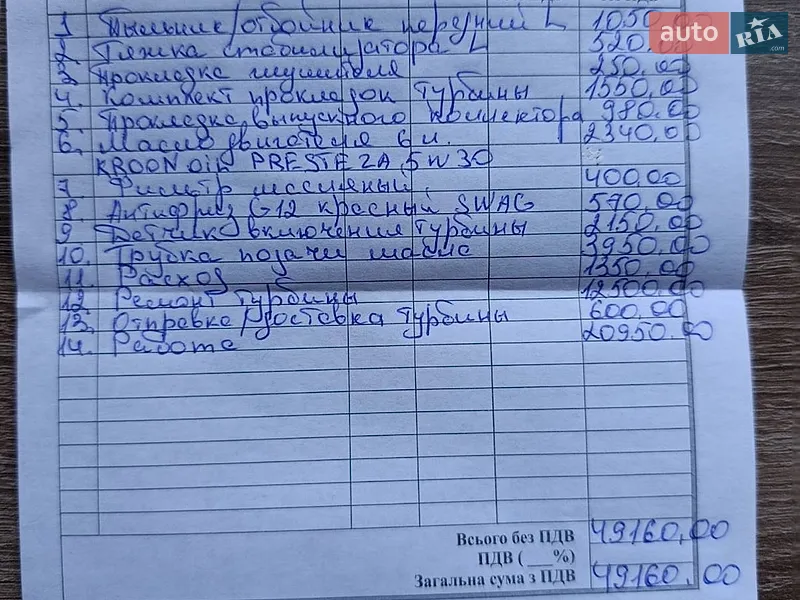 1 Пыльник/отбойник передний L 1050.00
2 Тяжка стабилизатора L 520.00
3 прокладка глушителя 250.00
4. Комплект прокладок турбины 1550.00
5. Прокладка выпускного коллектора 980.00
6. Масло двигателя 6 л. 2340,00
KROON OIL PRESTEZA 5W30
7. Фильтр масляный. 400,00
8. Антифриз G12 красный SWAG 570.00
9 Датчик включения турбины 2150.00
10. Трубка подачи масла 3950.00
11. Расход 1350.00
12 Ремонт турбины 12500.00
13. Отправка/доставка турбины 600.00
14. Работа 20950.00
Всього без ПДВ 49160,00
ПДВ (___%)
Загальна сума з ПДВ 49160.00
auto RIA .com